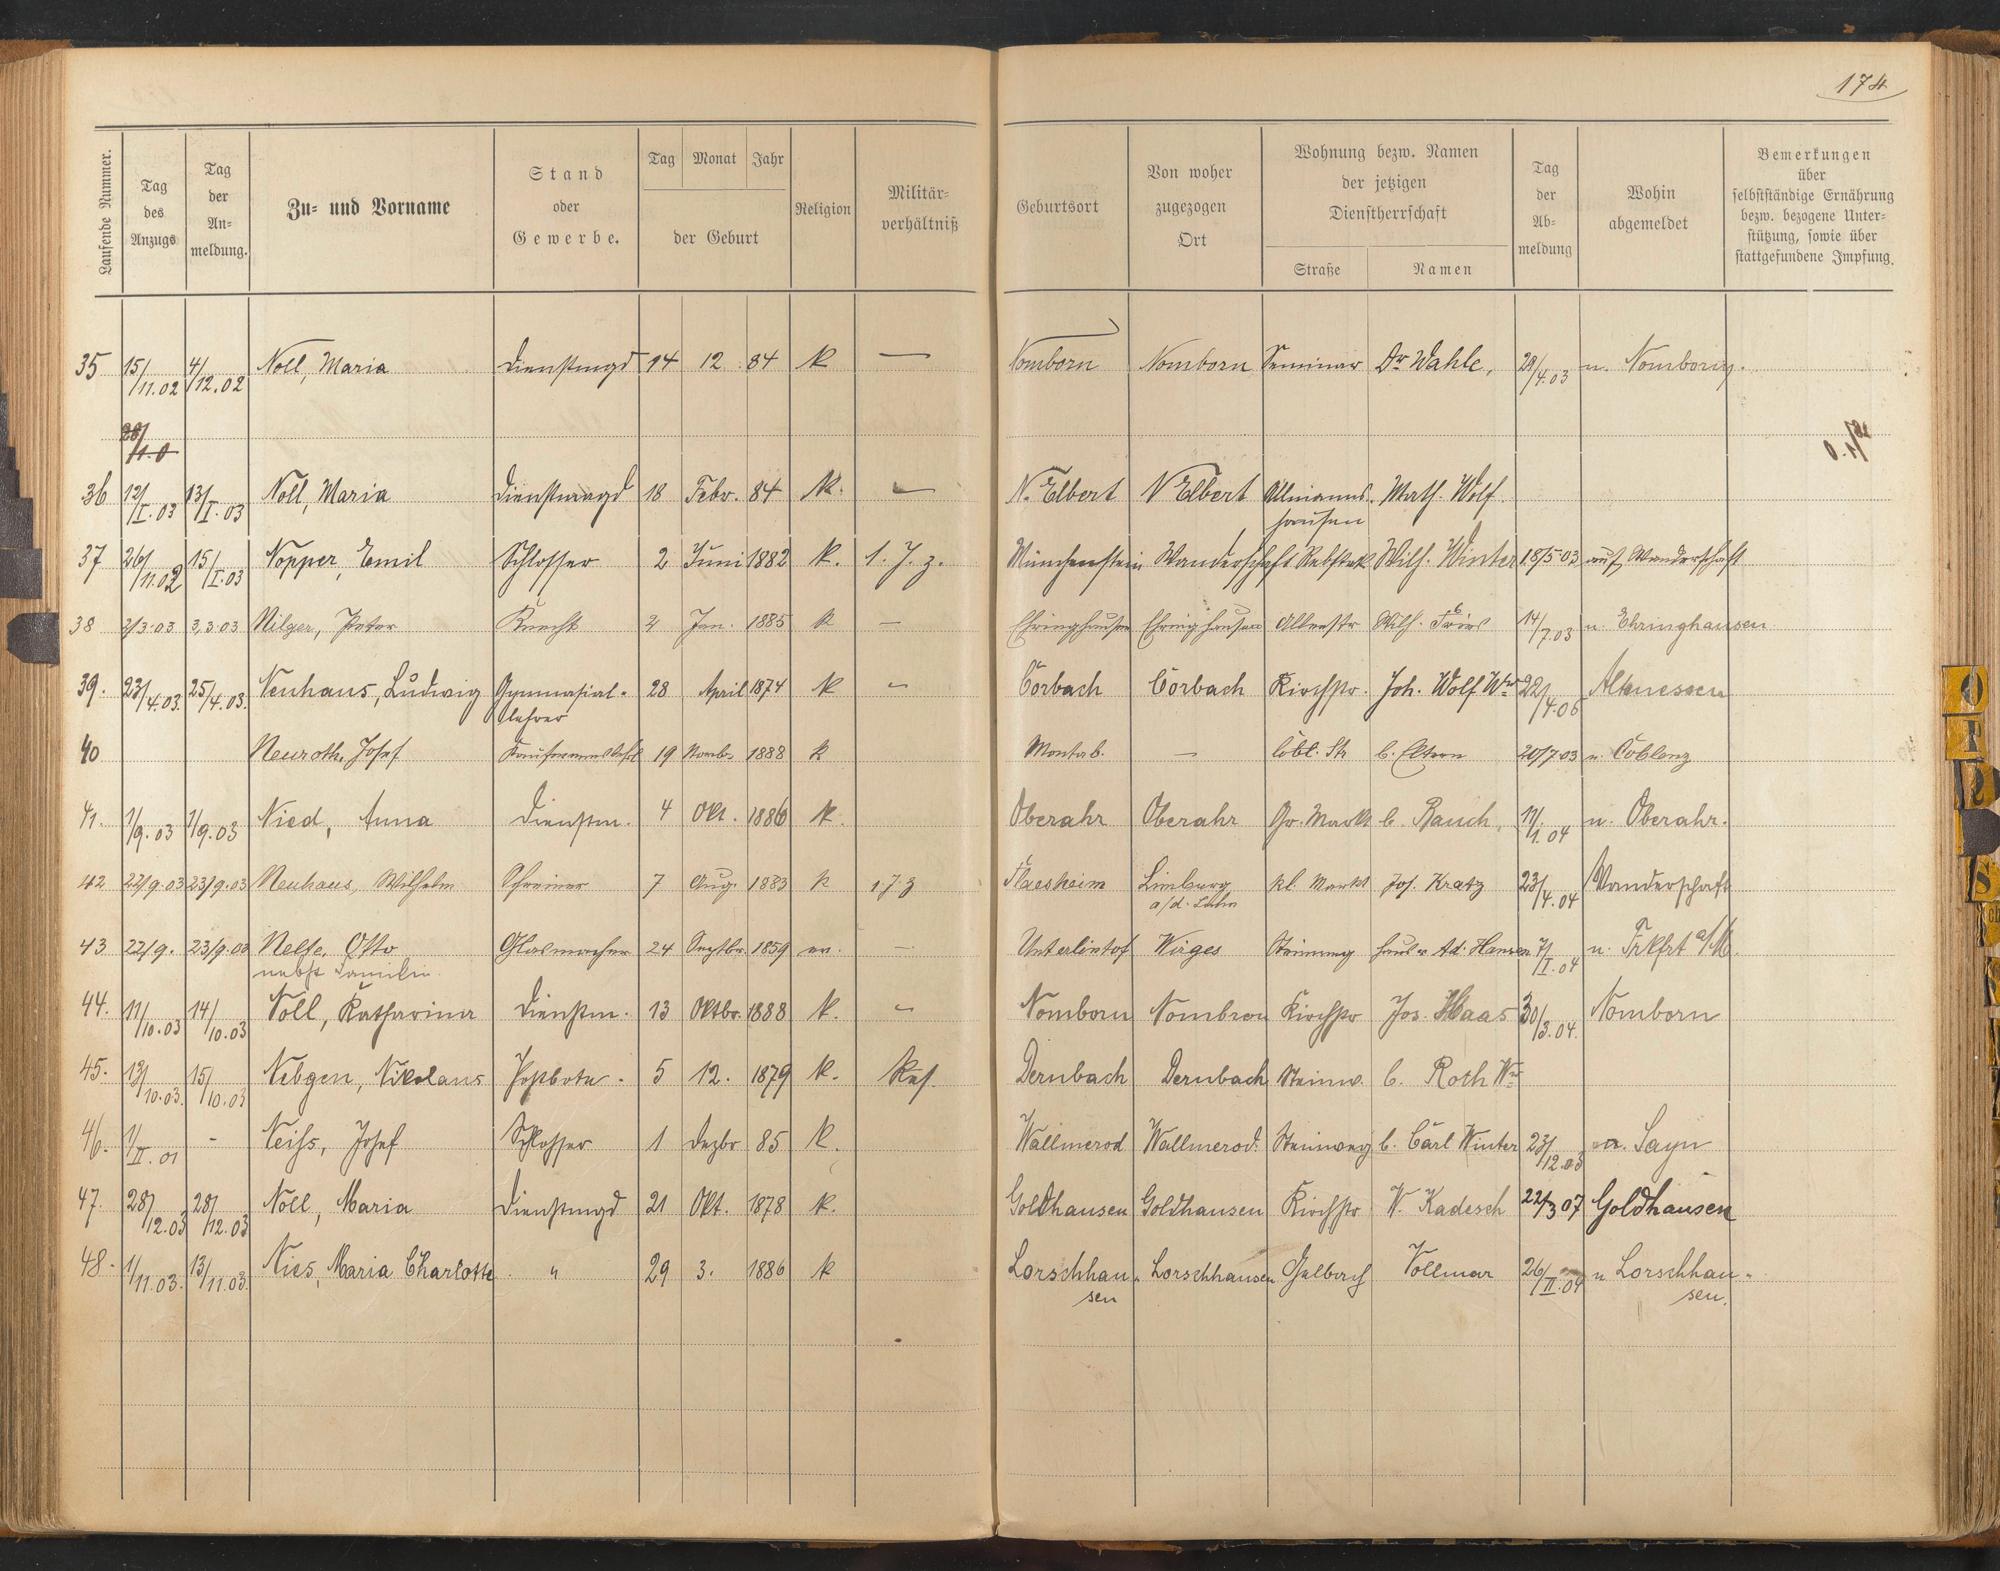 174
Laufende Nummer. Tag des Anzugs Tag der Anmeldung. Zu- und Vorname Stand oder Gewerbe. Tag Monat Jahr der Geburt Religion Militärverhältniß Geburtsort Von woher zugezogen Ort Wohnung bezw. Namen der jetzigen Dienstherrschaft Straße Namen Tag der Abmeldung Wohin abgemeldet Bemerkungen über selbstständige Ernährung bezw. bezogene Unterstützung, sowie über stattgefundene Impfung.
35 15/11.02 4/12.02 Noll, Maria Dienstmgd 14 12 84 k — Nomborn Nomborn Seminar Dr Wahle, 4.03 n. Nomborn.
36 12/I.03 13/I.03 Noll, Maria Dienstmagd 18 Febr. 84 k. — N. Elbert N Elbert Allmannshausen Math. Wolf
37 26/11.02 15/I.03 Nopper, Emil Schlosser 2 Juni 1882 k. 1. J. z. Münchenstein Wanderschaft Rebstock Wilh. Winter 18/5 03 auf Wanderschaft
38 2/3.03 3.3.03 Hilger, Peter Knecht 2 Jan. 1885 k — Ehringhausen Ehringhausen Albertstr Wilh. 14/7.03 n. Ehringhausen
39. 23/4.03. 25/4.03. Neuhaus, Ludwig Gymnasiallehrer 28 April 1874 k — Corbach Corbach Kirchstr. Joh. Wolf Ww 22/4.06 Altenessen
40 Neuroth, Josef 19 Novb. 1888 k Montab. — Str b. Eltern 20/7.03 n. Coblenz
41. 1/9.03 1/9.03 Nied, Anna Dienstm. 4 Okt. 1886 k. Oberahr Oberahr Gr. Markt b. Rauch, 11/1.04 n. Oberahr.
42 22/9.03 23/9.03 Neuhaus, Wilhelm Schreiner 7 Aug. 1883 k 1 J z Flaesheim Limburg a/d. Lahn kl. Markt Jos. Kratz 23/4.04 Wanderschaft
43 22/9. 23/9.03 Nelse, Otto nebst Familie Glasmacher 24 Septbr. 1859 ev. — Wirges Steinweg Haus v Ad. Hansen 7/I.04 n. Frkfrt a/M.
44. 11/10.03 14/10.03 Noll, Katharina Dienstm. 13 Oktbr. 1888 k. — Nomborn Nomborn Kirchstr Jos. Haas 30/3.04. Nomborn
45. 13/10.03. 15/10.03 Nebgen, Nikolaus Postbote. 5 12. 1879 k. Res. Dernbach Dernbach Steinw. b. Roth Ww
46. 1/II.01 - Neiss, Josef Schlosser 1 Dezbr 85 k. Wallmerod Wallmerod. Steinweg b. Carl Winter 23/12.03 n. Sayn
47. 28/12.03 28/12.03 Noll, Maria Dienstmgd 21 Okt. 1878 k. Goldhausen Goldhausen Kirchstr W. Kadesch 22/3 07 Goldhausen
48. 1/11.03. 13/11.03. Nies, Maria Charlotte " 29 3. 1886 k Lorschhausen Lorschhausen Gelbach Vollmar 26/II.04 n Lorschhausen.